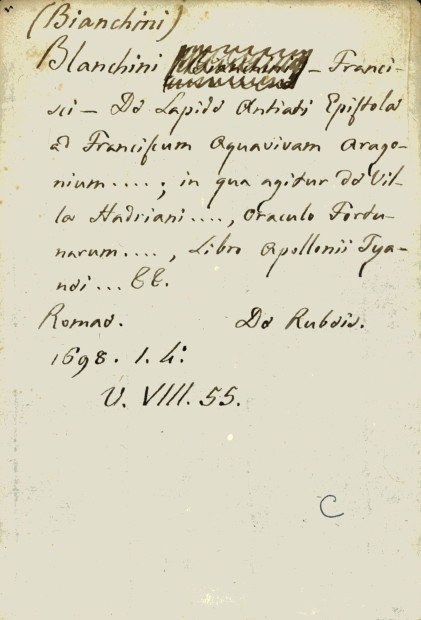 (Bianchini)
Blanchini — Franci-
sci — De Lapide Antiati Epistola
ad Franciscum Aquavivam Arago-
nium....; in qua agitur de Vil-
la Hadriani...., Oraculo Fortu-
narum...., Libro Apollonii Tya-
nei... &c.
Romae. De Rubeis.
1698. 1. 4:
V. VIII. 55.
C